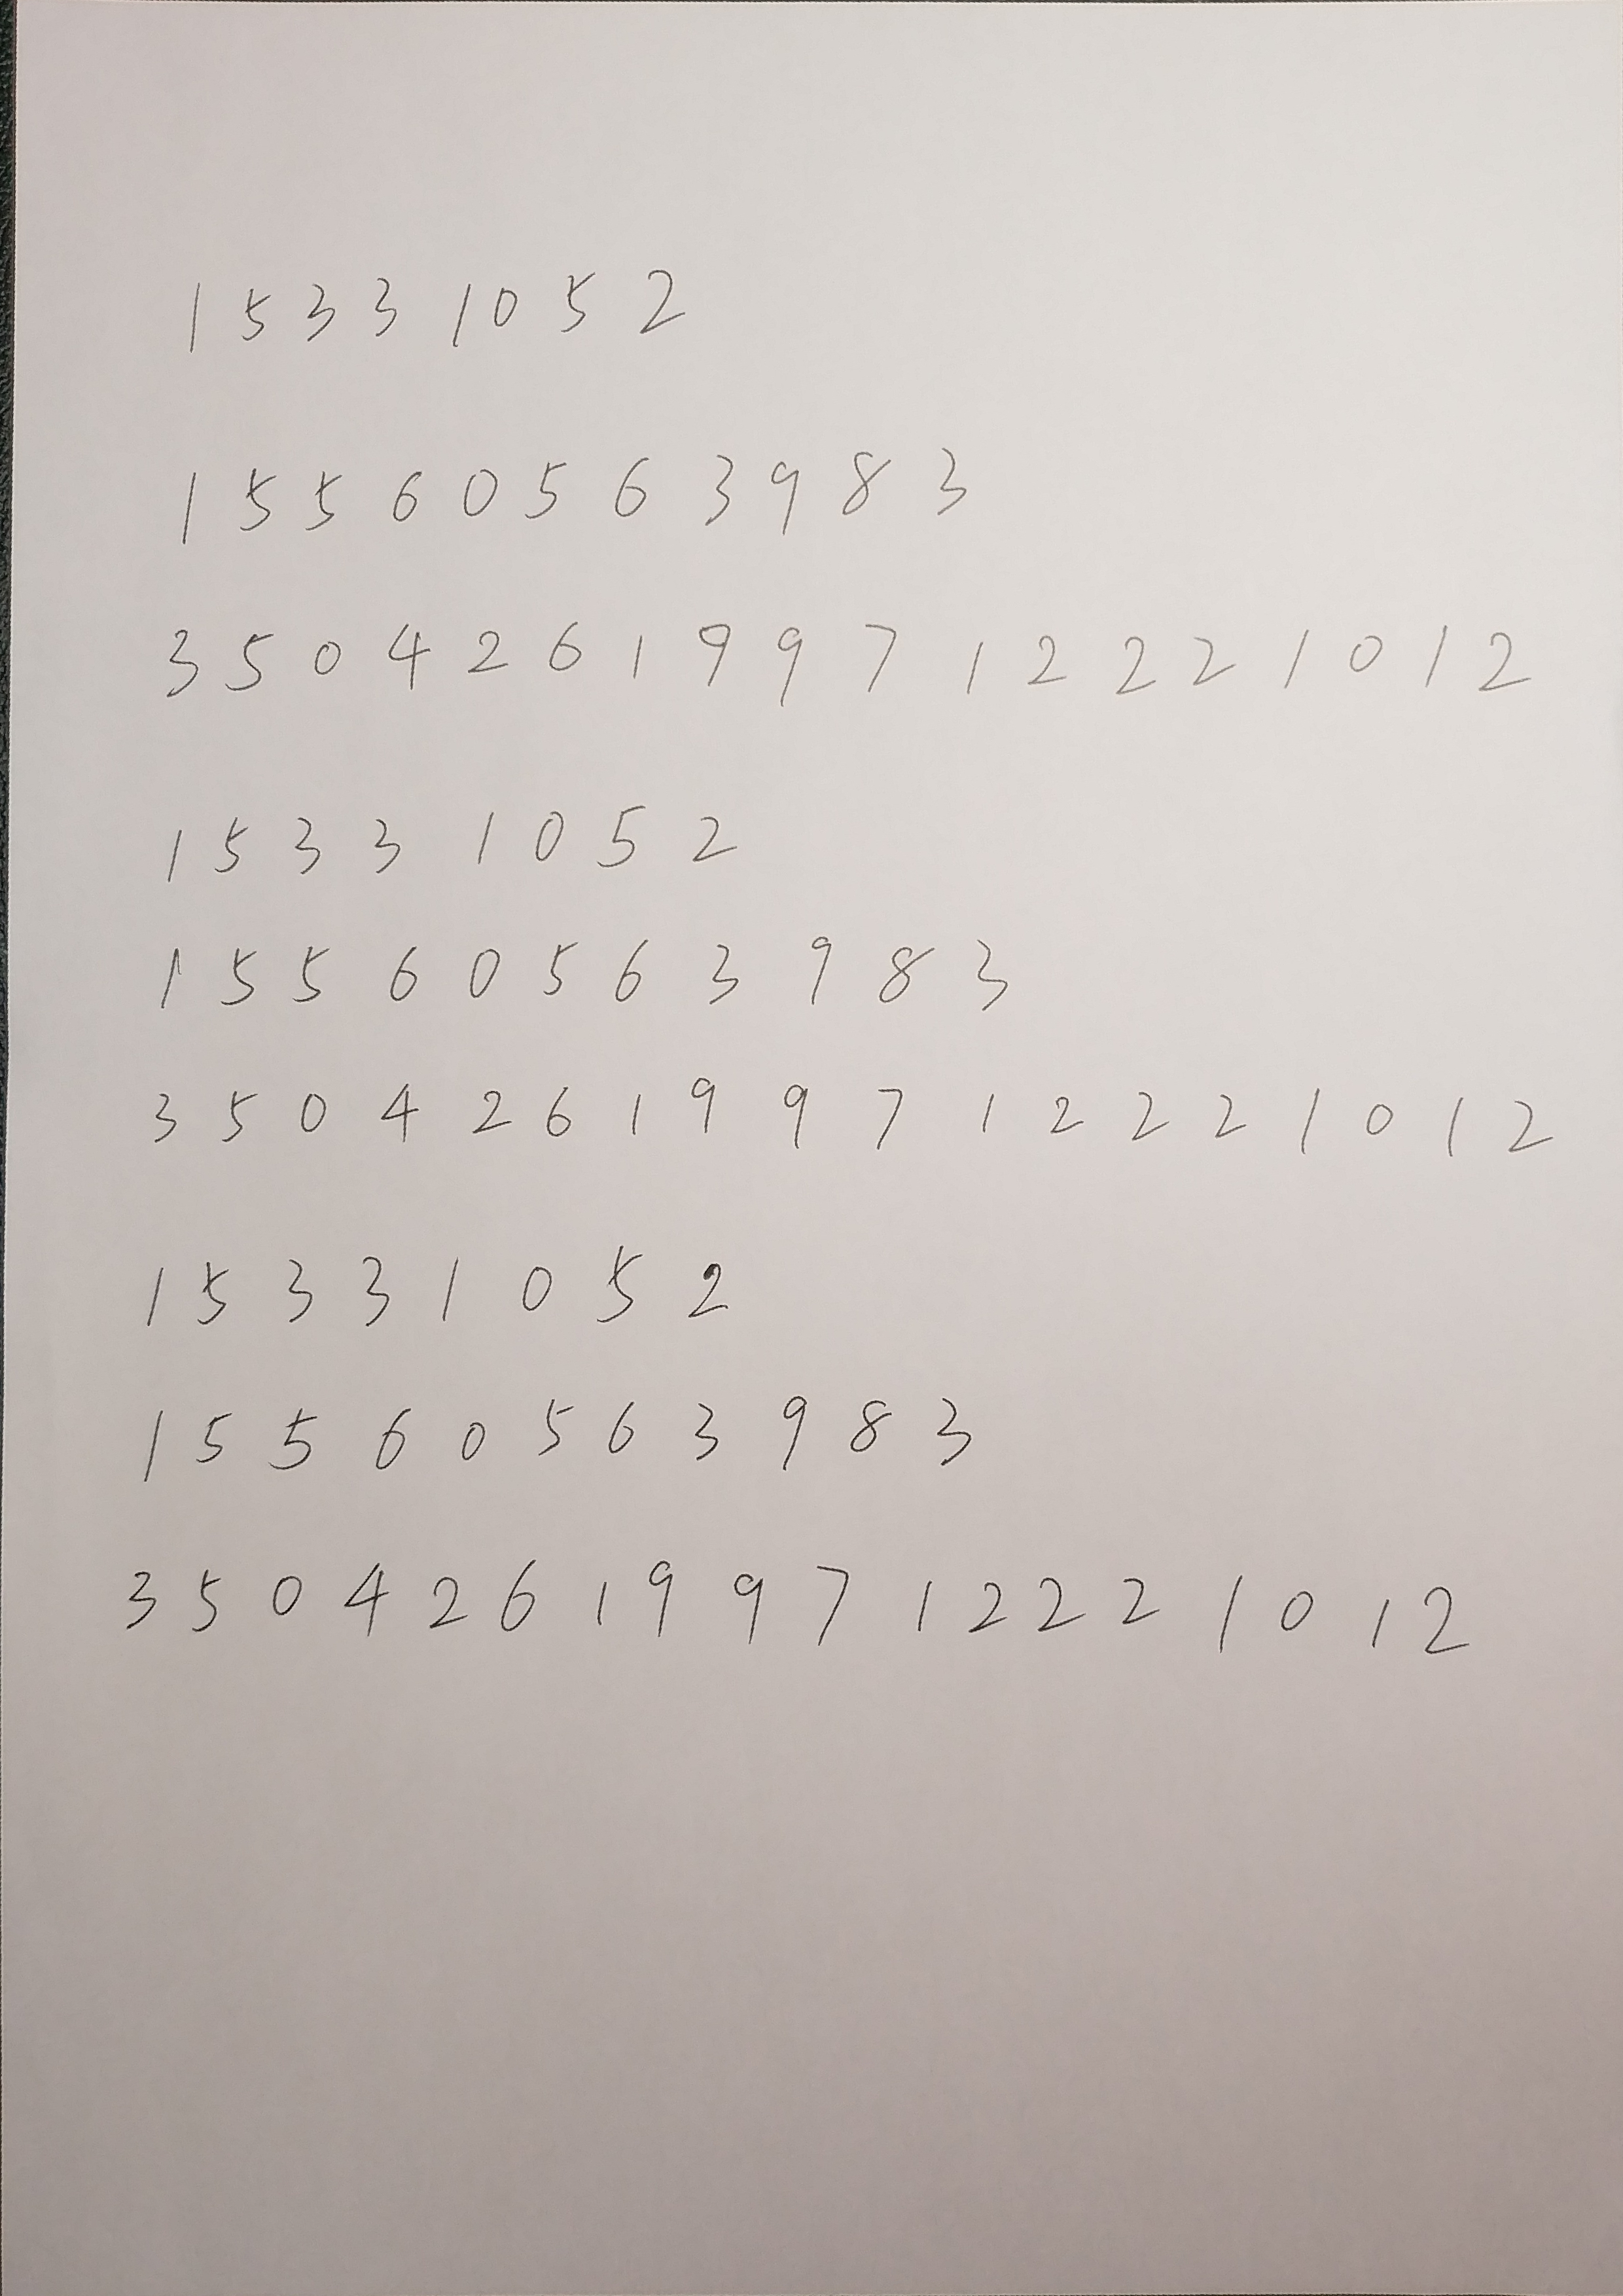 1 5 3 3 1 0 5 2
1 5 5 6 0 5 6 3 9 8 3
3 5 0 4 2 6 1 9 9 7 1 2 2 2 1 0 1 2
1 5 3 3 1 0 5 2
1 5 5 6 0 5 6 3 9 8 3
3 5 0 4 2 6 1 9 9 7 1 2 2 2 1 0 1 2
1 5 3 3 1 0 5 2
1 5 5 6 0 5 6 3 9 8 3
3 5 0 4 2 6 1 9 9 7 1 2 2 2 1 0 1 2